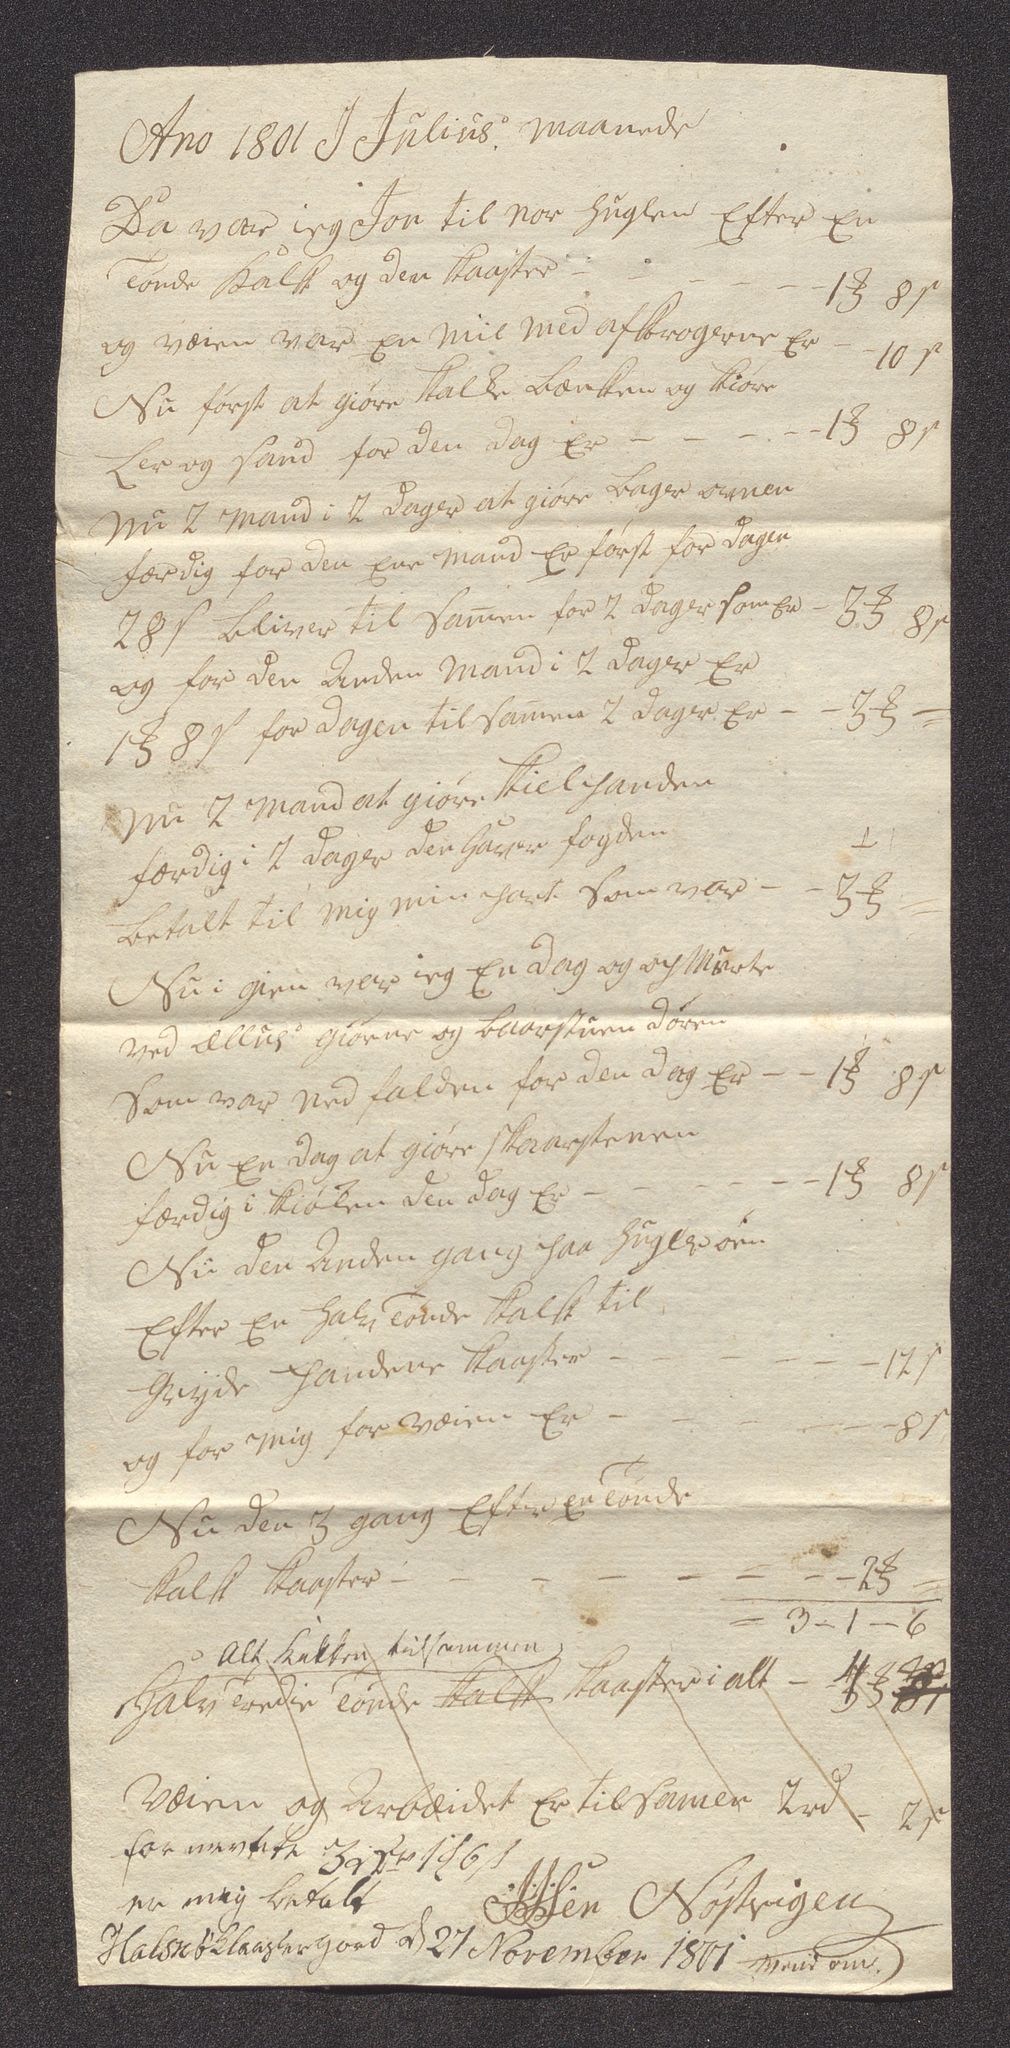 Ano 1801 J Julius. maanede
Da var ieg Jon til nor huglen Efter En
Tønde Kalk og den kaaster - - - - - 1 ℔ 8 s
og væien var En Mil med afkrogerne Er - - 10 s
Nu først at giøre kalke bænken og kiøre
Ler og sand for den dag Er - - - - - 1 ℔ 8 s
Nu 2 Mand i 2 dager at giøre bager ovnen
færdig for den Ene Mand Er først for dagen
28 s bliver til samen for 2 dager som Er - 3 ℔ 8 s
og for den Anden Mand i 2 dager Er
1 ℔ 8 s for dagen til samen 2 dager Er - - 3 ℔ =
Nu 2 Mand at giøre kielhanden
færdig i 2 dager den haver fogden
betalt til Mig min part som var - - 3 ℔ =
Nu i gien var ieg En dag og op Murte
ved giørne og baarstuen døren
som var ned falden for den dag Er - - 1 ℔ 8 s
Nu En dag at giøre skaarstenen
færdig i kiøken den dag Er - - - - - - 1 ℔ 8 s
Nu den Anden gang paa hugle øen
Efter En halv Tønde kalk til
gryde pandene kaaster - - - - - - 12 s
og for Mig for væien Er - - - - - 8 s
Nu den 3 gang Efter En Tønde
kalk kaaster - - - - - = - - 2 ℔ =
= 3 - 1 - 6
Alt tilsammen
Halv Tredie Tønde kalk kaaster i alt - 4 ℔
Væien og Arbeidet Er tilsamen 2 rd - 2 s
for nevnte 3 1 6 s
er mig betalt Nøstvigen
Halsnøe Klaastergaard d 27 November 1801 vend om.